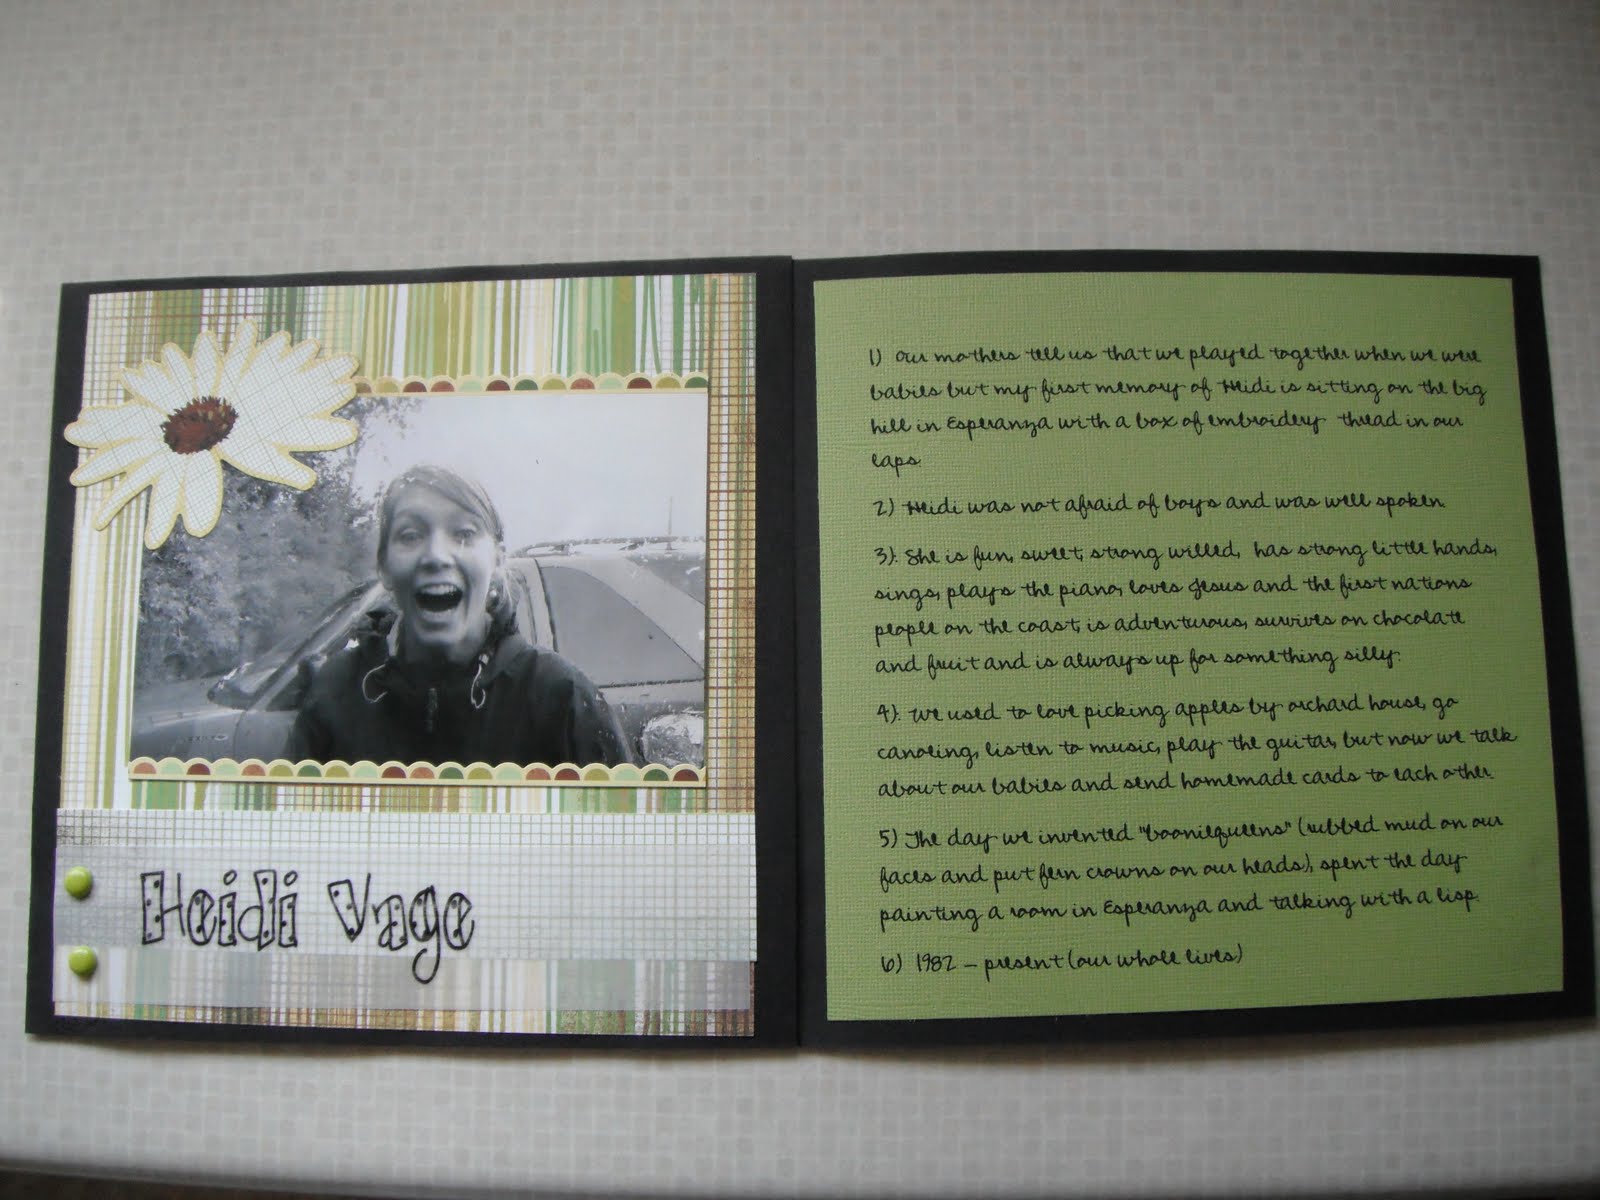 Heidi Vage
1) Our mothers tell us that we played together when we were
babies but my first memory of Heidi is sitting on the big
hill in Esperanza with a box of embroidery thread in our
laps.
2) Heidi was not afraid of boys and was well spoken.
3). She is fun, sweet, strong willed, has strong little hands,
sings, plays the piano, loves Jesus and the first nations
people on the coast, is adventurous, survives on chocolate
and fruit and is always up for something silly.
4). We used to love picking apples by orchard house, go
canoeing, listen to music, play the guitar, but now we talk
about our babies and send homemade cards to each other.
5) The day we invented "booniequeens" (rubbed mud on our
faces and put fern crowns on our heads), spent the day
painting a room in Esperanza and talking with a lisp.
6) 1982 – present (our whole lives)